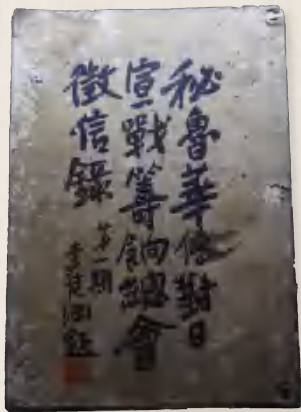 秘魯華僑對日
宣戰籌餉總會
徵信錄
第一期